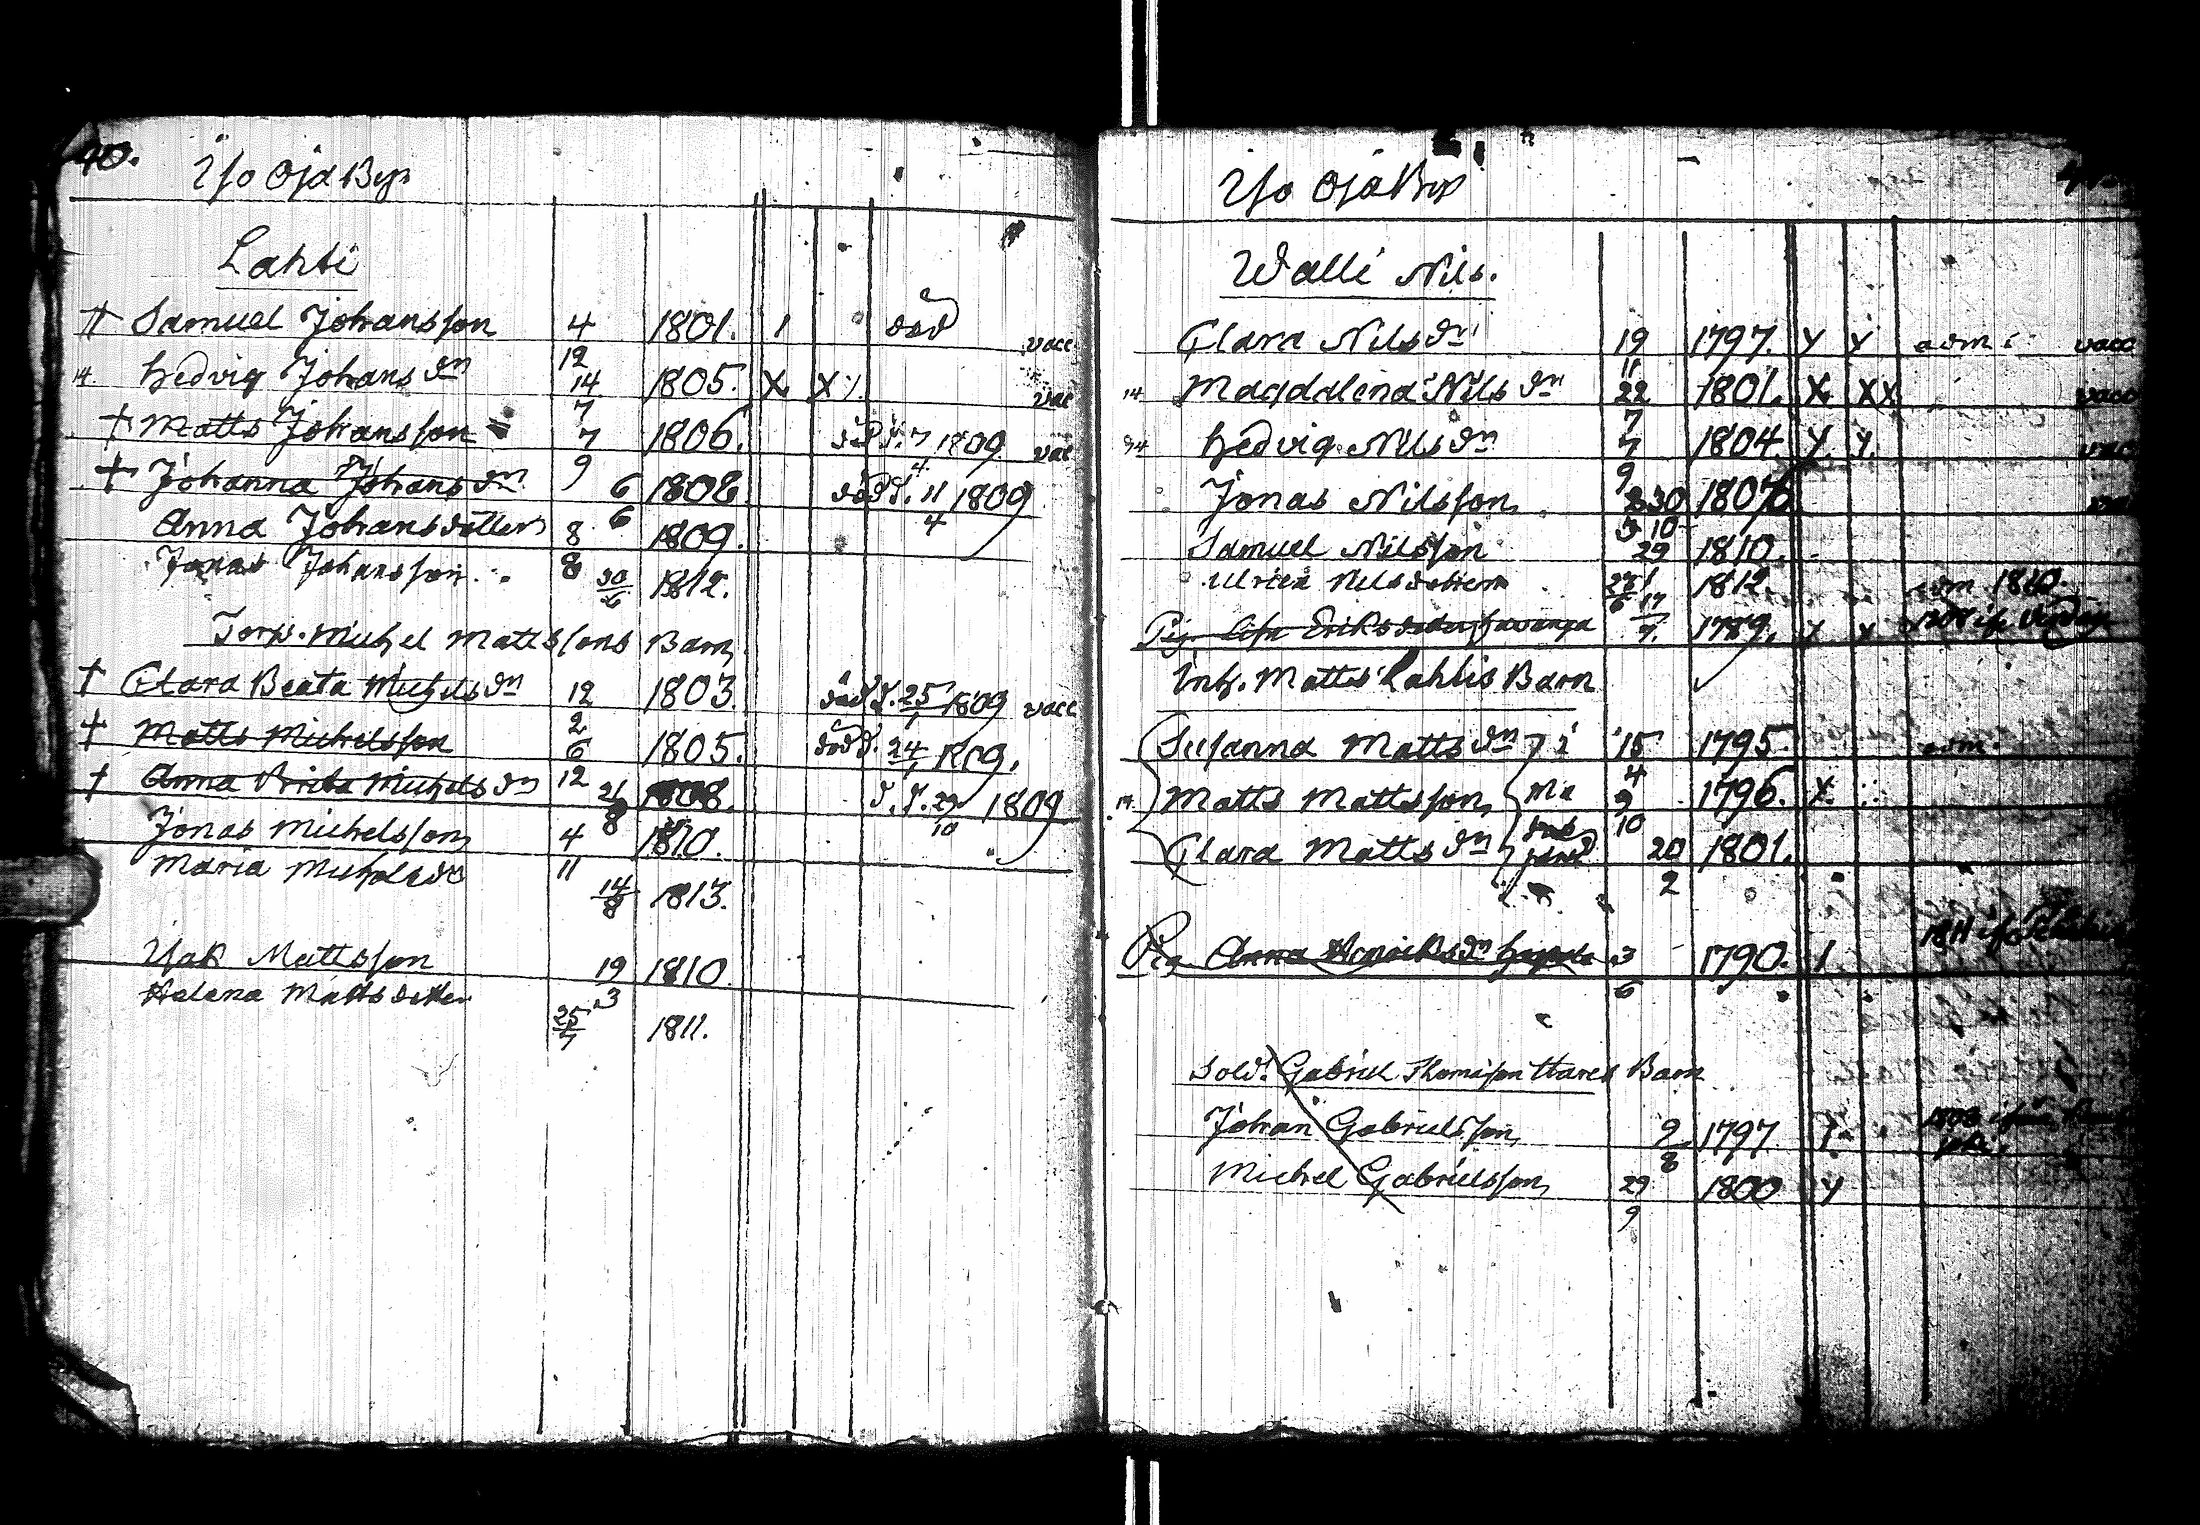 40.
Iso Oja By
Lahti
†† Samuel Johansson 4/12 1801. 1 död vacc
14. Hedvig Johans dn 14/7 1805. X X vac
† Matts Johansson 7/9 1806. död d. 7/4 1809 vac
† Johanna Johans dn 6/6 1808. död d. 11/4 1809
Anna Johansdotter 8/8 1809.
Jonas Johansson 30/6 1812.
Torp. Michel Mattssons Barn
† Clara Beata Michels dn 12/2 1803. död d. 25/1 1809 vacc
† Matts Michelsson 6/12 1805. död d. 24/1 1809.
† Anna Brita Michels dn 21/8 1808. d. d. 29/10 1809
Jonas Michelsson 4/11 1810.
Maria Michelsdr 14/8 1813.
Isak Mattsson 19/3 1810
Helena Mattsdotter 25/7 1811.
Iso Oja By
Walli Nils.
Clara Nils dn 19/11 1797. Y Y adm vacc
14 Magdalena Nils dn 22/7 1801. X XX vacc
Hedvig Nils dn 7/9 1804. Y. Y. vacc
Jonas Nilsson 30/10 1807
Samuel Nilsson 29/1 1810.
Ulrica Nilsdotter 1812. adm. 1810.
Pig. Lisa Eriksdotter 17/7 1789. Y Y
Inh. Matts Lahtis Barn
Susanna Matts dn 15/4 1795. adm.
Matts Mattsson 9/10 1796. X.
Clara Matts dn 20/2 1801.
Pig Anna 3/6 1790. 1 1811
Sold. Gabriel Thomasson Hares Barn
Johan Gabrielsson 9/8 1797 1808
Michel Gabrielsson 29/9 1800 Y